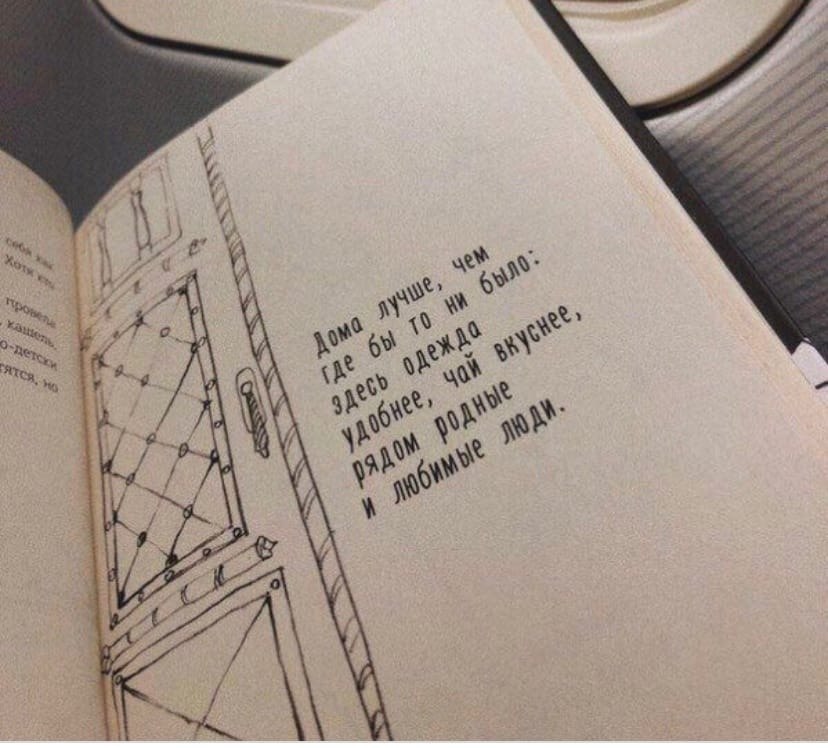 себя как
Хотя кто
провела
, кашель,
о-детски
тятся, но
Дома лучше, чем
где бы то ни было:
здесь одежда
удобнее, чай вкуснее,
рядом родные
и любимые люди.